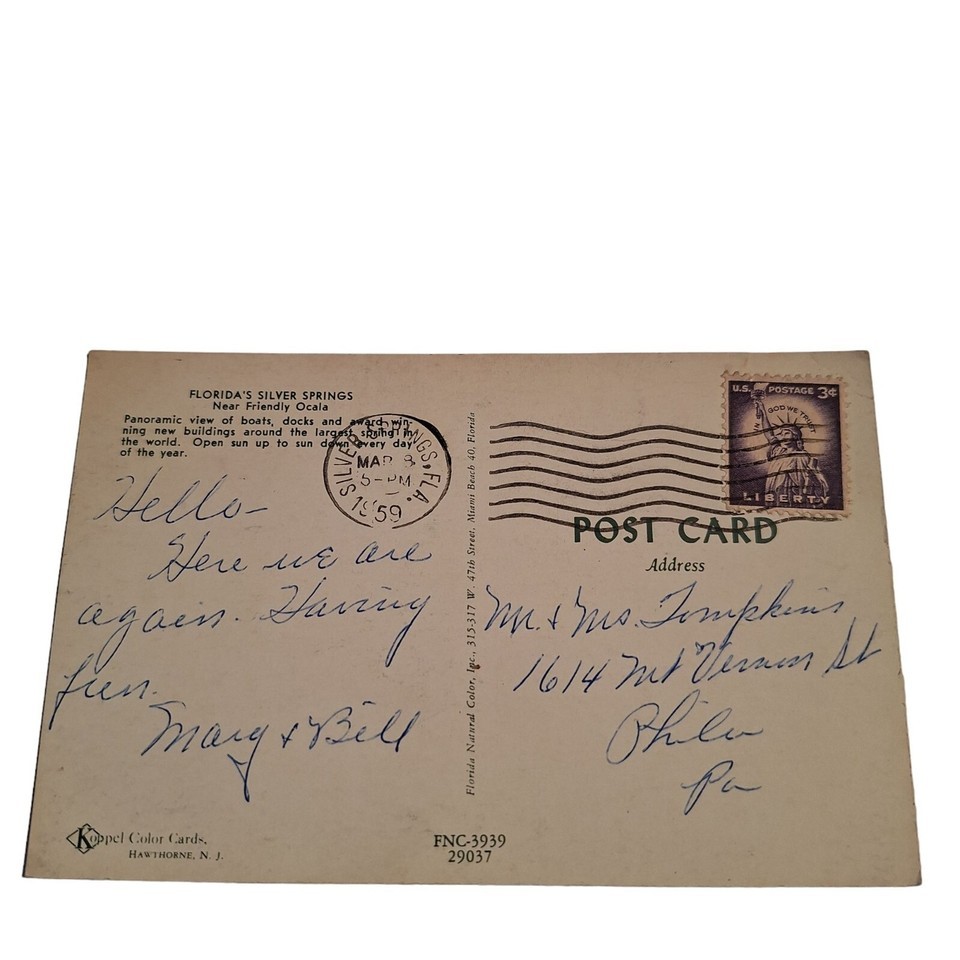 FLORIDA'S SILVER SPRINGS
Near Friendly Ocala
Panoramic view of boats, docks and award win-
ning new buildings around the largest spring in
the world. Open sun up to sun down every day
of the year.
SILVER SPRINGS, FLA.
MAR 8
5-PM
1959
Hello-
Here we are
again. Having
fun.
Mary & Bill
Koppel Color Cards,
HAWTHORNE, N. J.
FNC-3939
29037
Florida Natural Color, Inc., 315-317 W. 47th Street, Miami Beach 40, Florida
U.S. POSTAGE 3¢
IN GOD WE TRUST
LIBERTY
POST CARD
Address
Mr. & Ms. Tompkins
1614 Mt Vernon St
Phila
Pa